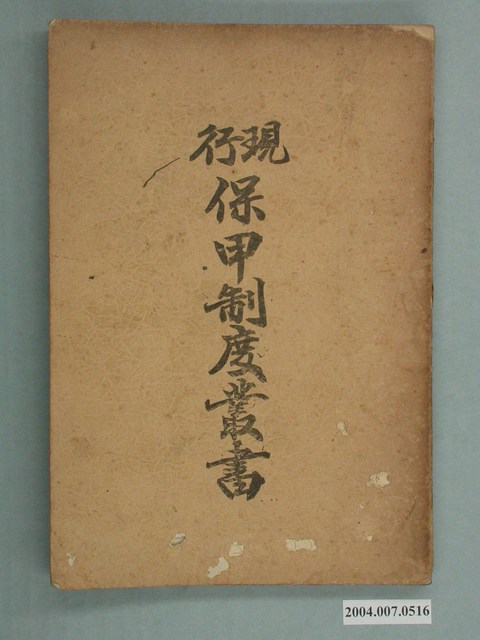 現行
保甲制度叢書
2004.007.0516